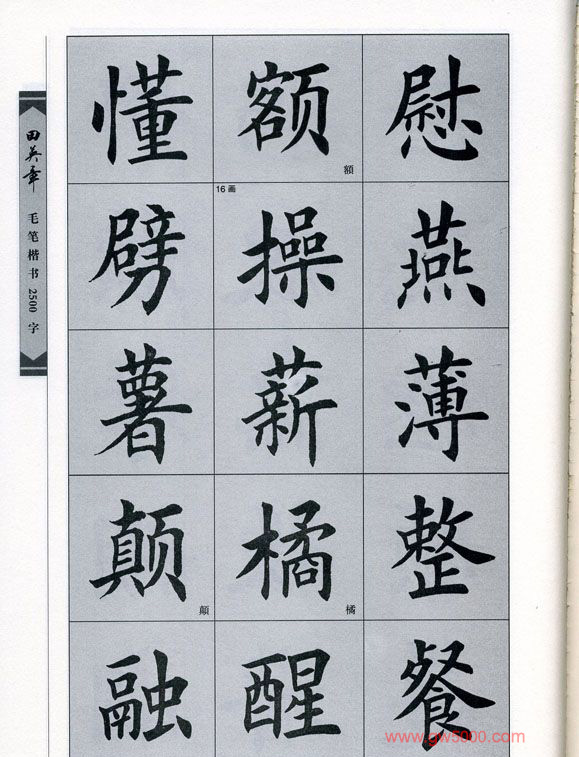 田英章 毛笔楷书 2500 字
懂 额 額 慰
劈 16 画 操 燕
薯 薪 薄
颠 顛 橘 橘 整
融 醒 餐
www.gw5000.com